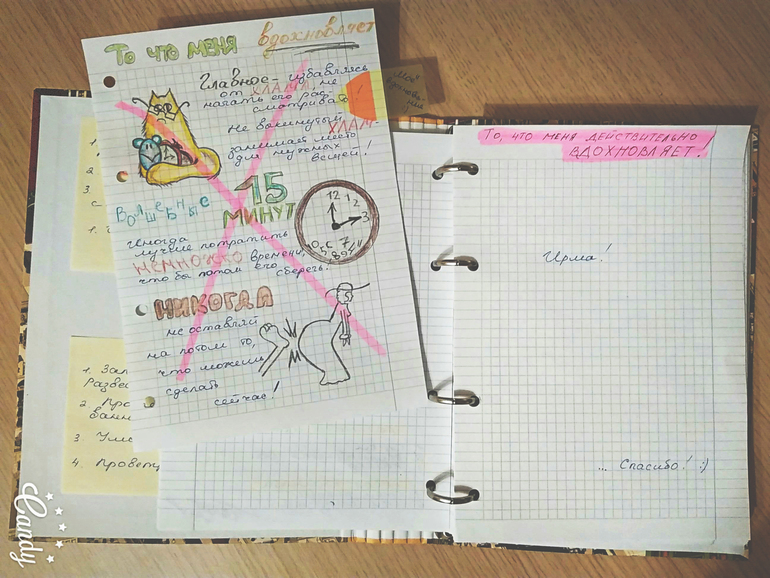 То что меня вдохновляет
Главное - избавляясь
от ХЛАМА, не
начать его рас-
сматривать!
Не выкинутый
ХЛАМ
занимает место
для нужных
вещей!
Волшебные
15
МИНУТ
Иногда
лучше потратить
НЕМНОЖКО времени,
что бы потом его
сберечь!
12
1
2
3
НИКОГДА
не оставляй
на потом то,
что можешь
сделать
сейчас!
Моё
вдохнове-
ние
1.
2
3.
1.
1. Зап
Разве
2
ванн
3
4. Провет
То, что меня действительно
ВДОХНОВЛЯЕТ.
Ирма!
... Спасибо! :)
Candy